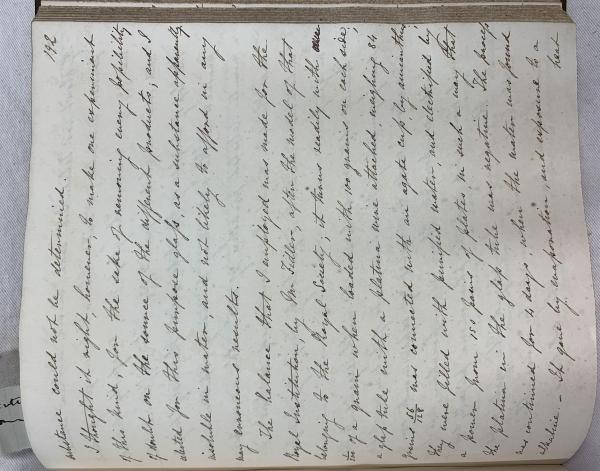 192
substance could not be determined.
I thought it right, however, to make one experiment
of this kind, for the sake of removing every possibility
of doubt on the source of the different products; and I
selected for this purpose glass, as a substance apparently
insoluble in water, and not likely to afford in any
way erroneous results.
The balance that I employed was made for the
Royal Institution, by Mr Fidler, after the model of that
belonging to the Royal Society; it turns readily with
1/200 of a grain when loaded with 100 grains on each side;
a glass tube with a platina wire attached weighing 84
grains 56/128 was connected with an agate cup by amianthus
they were filled with purified water, and electrified by
a power from 150 pairs of plates, in such a way that
the platina in the glass tube was negative. The process
was continued for 4 days, when the water was found
alkaline - It gave by evaporation, and exposure to a
heat